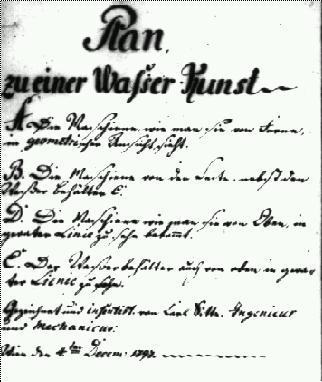 Plan,
zu einer Wasser Kunst
A. Die Maschiene, wie man sie von Forne,
in geometrischer Ansicht, sieht.
B. Die Maschiene von der Seite, nebst den
Wasser behälter C.
D. Die Maschiene wie man sie von Oben, in
gerater Linie zu sehn bekommt.
C. Der Wasserbehälter auch von oben in gera-
ter Linie zu sehn.
Gezeichnet und von Carl Sitte, Ingenieur
und Mechanicus.
Wien den 4ten Decem: